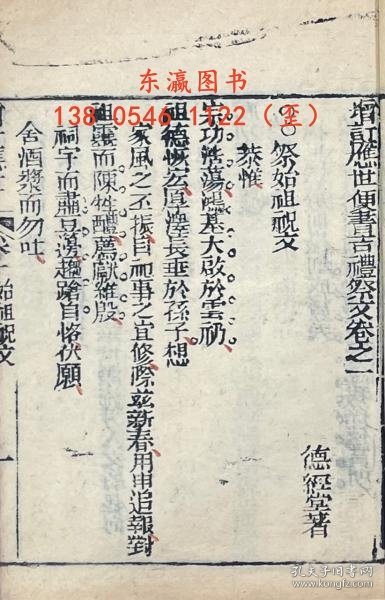 东瀛图书
138 0546 1122（歪）
增訂應世便書吉禮祭文卷之一
德經堂著
○○祭始祖祝文
恭惟
宗功浩蕩鴻基大啟於雲礽
祖德恢宏厚澤長垂於孫子想
家風之丕振自祀事之宜修際兹新春用申追報對
祖靈而陳牲醴薦獻維殷
祠宇而肅豆籩趨蹌自恪伏願
舍酒漿而勿吐
卷一 始祖祝文
一
孔夫子旧书网